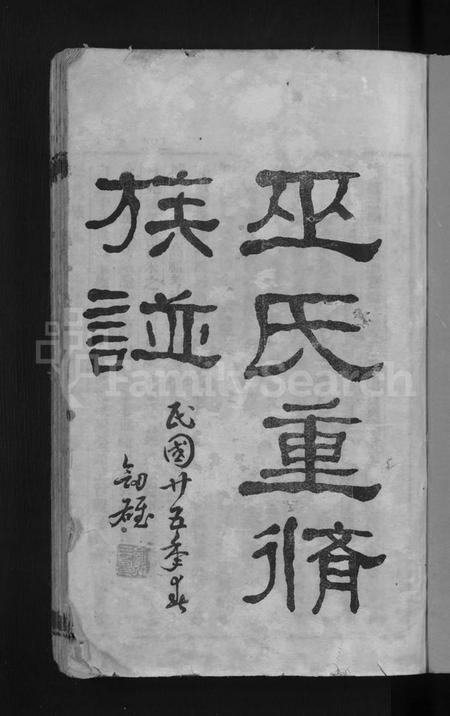 巫氏重脩
族譜
民國廿五年春
劍雄
FamilySearch